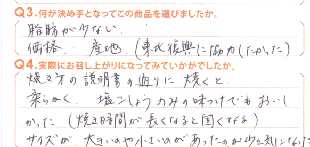 Q3.何が決め手となってこの商品を選びましたか。
脂肪が少ない
価格、産地（東北復興に協力したかった）
Q4.実際にお召し上がりになってみていかがでしたか。
焼き方の説明書の通りに焼くと
柔らかく、塩こしょうのみの味つけでもおいし
かった（焼き時間が長くなると固くなる）
サイズが大きいのや小さいのがあったのが少々気になった